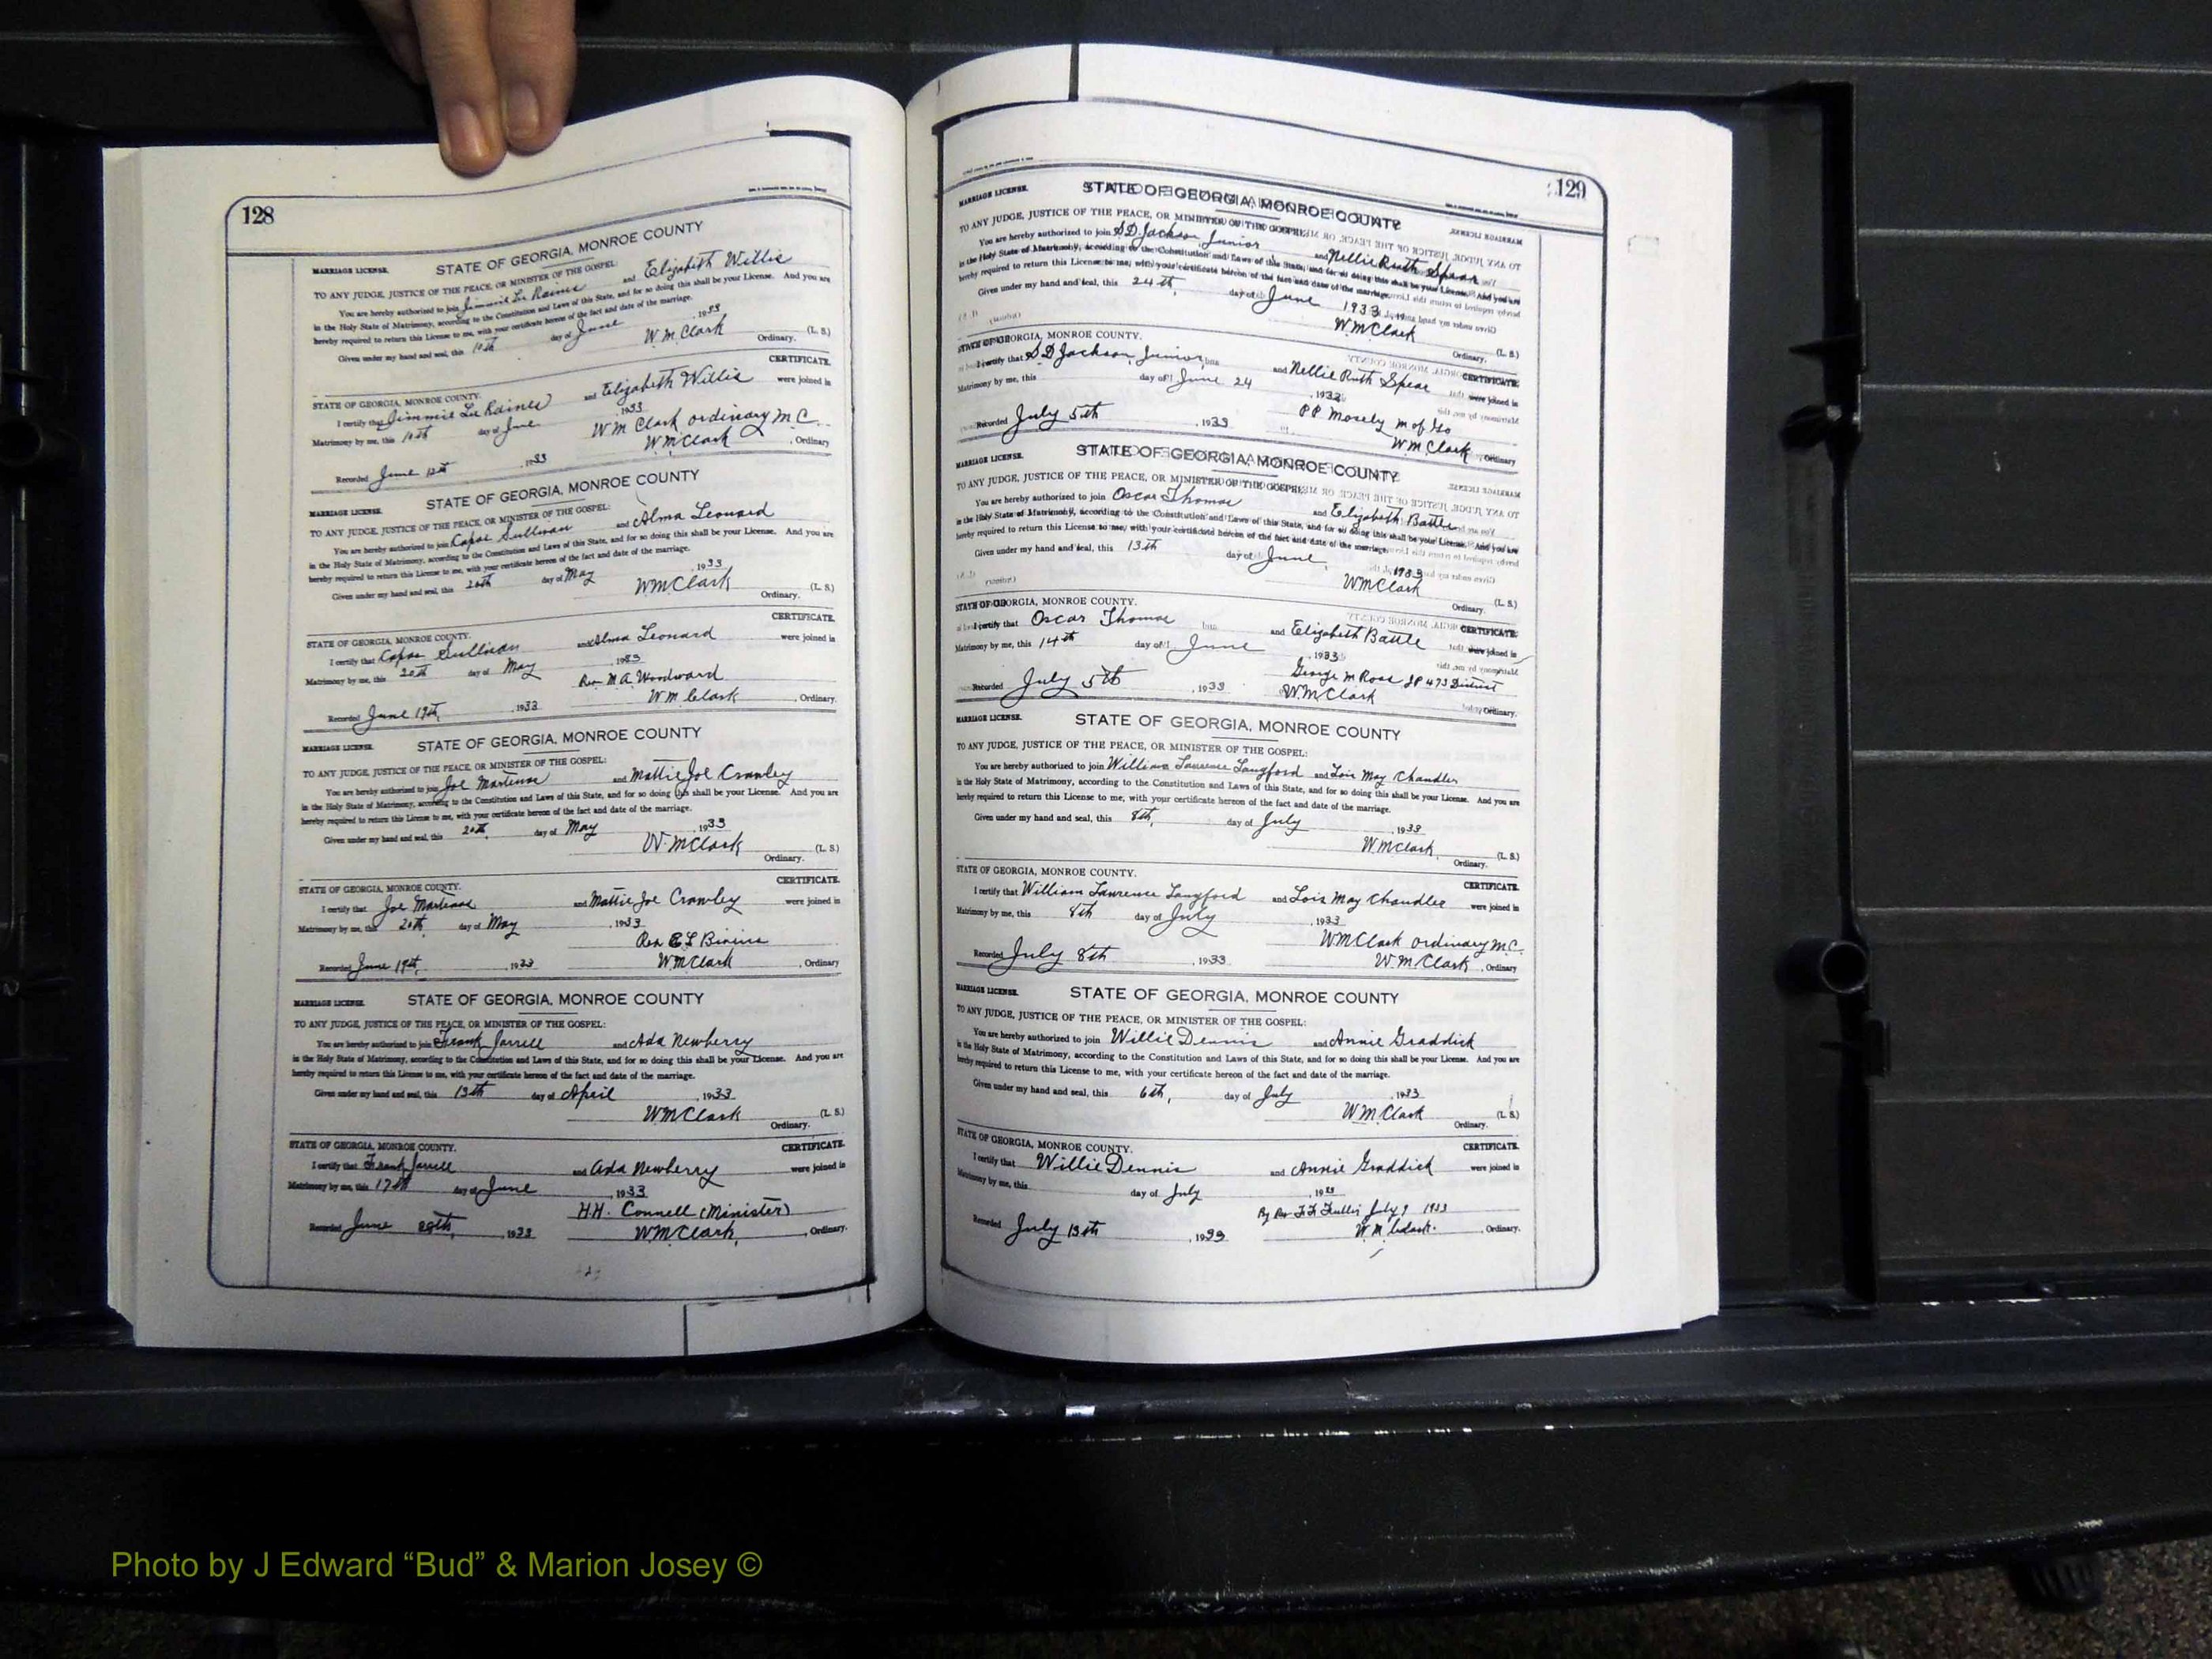 128
MARRIAGE LICENSE. STATE OF GEORGIA, MONROE COUNTY
TO ANY JUDGE, JUSTICE OF THE PEACE, OR MINISTER OF THE GOSPEL:
You are hereby authorized to join Jimmie Lee Raines and Elizabeth Willis
in the Holy State of Matrimony, according to the Constitution and Laws of this State, and for so doing this shall be your License. And you are
hereby required to return this License to me, with your certificate hereon of the fact and date of the marriage.
Given under my hand and seal, this 10th day of June 1933
W.M. Clark (L. S.)
Ordinary.
CERTIFICATE.
STATE OF GEORGIA, MONROE COUNTY.
I certify that Jimmie Lee Raines and Elizabeth Willis were joined in
Matrimony by me, this 10th day of June 1933
WM Clark ordinary M C.
Recorded June 12th, 1933 WM Clark, Ordinary
MARRIAGE LICENSE. STATE OF GEORGIA, MONROE COUNTY
TO ANY JUDGE, JUSTICE OF THE PEACE, OR MINISTER OF THE GOSPEL:
You are hereby authorized to join Sullivan and Alma Leonard
in the Holy State of Matrimony, according to the Constitution and Laws of this State, and for so doing this shall be your License. And you are
hereby required to return this License to me, with your certificate hereon of the fact and date of the marriage.
Given under my hand and seal, this 20th day of May, 1933
WM Clark (L. S.)
Ordinary.
CERTIFICATE.
STATE OF GEORGIA, MONROE COUNTY.
I certify that Sullivan and Alma Leonard were joined in
Matrimony by me, this 20th day of May, 1933
Rev M.A. Woodward
Recorded June 19th, 1933 W.M. Clark, Ordinary.
MARRIAGE LICENSE. STATE OF GEORGIA, MONROE COUNTY
TO ANY JUDGE, JUSTICE OF THE PEACE, OR MINISTER OF THE GOSPEL:
You are hereby authorized to join Joe and Mattie Joe Crawley
in the Holy State of Matrimony, according to the Constitution and Laws of this State, and for so doing this shall be your License. And you are
hereby required to return this License to me, with your certificate hereon of the fact and date of the marriage.
Given under my hand and seal, this 20th day of May, 1933
W.M Clark (L. S.)
Ordinary.
CERTIFICATE.
STATE OF GEORGIA, MONROE COUNTY.
I certify that Joe and Mattie Joe Crawley were joined in
Matrimony by me, this 20th day of May, 1933
Rev
Recorded June 19th, 1933 WM Clark, Ordinary
MARRIAGE LICENSE. STATE OF GEORGIA, MONROE COUNTY
TO ANY JUDGE, JUSTICE OF THE PEACE, OR MINISTER OF THE GOSPEL:
You are hereby authorized to join Frank Jarrell and Ada Newberry
in the Holy State of Matrimony, according to the Constitution and Laws of this State, and for so doing this shall be your License. And you are
hereby required to return this License to me, with your certificate hereon of the fact and date of the marriage.
Given under my hand and seal, this 13th day of April, 1933
WM Clark (L. S.)
Ordinary.
CERTIFICATE.
STATE OF GEORGIA, MONROE COUNTY.
I certify that Frank Jarrell and Ada Newberry were joined in
Matrimony by me, this 17th day of June, 1933
H.H. Connell (Minister)
Recorded June 29th, 1933 WM Clark, Ordinary.
129
MARRIAGE LICENSE. STATE OF GEORGIA, MONROE COUNTY
TO ANY JUDGE, JUSTICE OF THE PEACE, OR MINISTER OF THE GOSPEL
You are hereby authorized to join S.D. Jackson Junior and Nellie Ruth Spear
in the Holy State of Matrimony, according to the Constitution and Laws of this State, and for so doing this shall be your License. And you are
hereby required to return this License to me, with your certificate hereon of the fact and date of the marriage.
Given under my hand and seal, this 24th, day of June 1933
WM Clark (L. S.)
Ordinary.
STATE OF GEORGIA, MONROE COUNTY. CERTIFICATE.
I certify that S D Jackson, Junior and Nellie Ruth Spear were joined in
Matrimony by me, this day of June 24, 1933
P P Mosely m of Go
Recorded July 5th, 1933 WM Clark, Ordinary
MARRIAGE LICENSE. STATE OF GEORGIA, MONROE COUNTY
TO ANY JUDGE, JUSTICE OF THE PEACE, OR MINISTER OF THE GOSPEL
You are hereby authorized to join Oscar Thomas and Elizabeth Battle
in the Holy State of Matrimony, according to the Constitution and Laws of this State, and for so doing this shall be your License. And you are
hereby required to return this License to me, with your certificate hereon of the fact and date of the marriage.
Given under my hand and seal, this 13th day of June, 1933
WM Clark (L. S.)
Ordinary.
STATE OF GEORGIA, MONROE COUNTY. CERTIFICATE.
I certify that Oscar Thomas and Elizabeth Battle were joined in
Matrimony by me, this 14th day of June, 1933
George M Ross JP 473 District
Recorded July 5th, 1933 WM Clark, Ordinary.
MARRIAGE LICENSE. STATE OF GEORGIA, MONROE COUNTY
TO ANY JUDGE, JUSTICE OF THE PEACE, OR MINISTER OF THE GOSPEL:
You are hereby authorized to join William Lawrence Langford and Lois May Chandler
in the Holy State of Matrimony, according to the Constitution and Laws of this State, and for so doing this shall be your License. And you are
hereby required to return this License to me, with your certificate hereon of the fact and date of the marriage.
Given under my hand and seal, this 8th, day of July, 1933
WM Clark, (L. S.)
Ordinary.
STATE OF GEORGIA, MONROE COUNTY. CERTIFICATE.
I certify that William Lawrence Langford and Lois May Chandler were joined in
Matrimony by me, this 8th day of July, 1933
WM Clark ordinary M.C.
Recorded July 8th, 1933 W.M. Clark, Ordinary
MARRIAGE LICENSE. STATE OF GEORGIA, MONROE COUNTY
TO ANY JUDGE, JUSTICE OF THE PEACE, OR MINISTER OF THE GOSPEL:
You are hereby authorized to join Willie Dennis and Annie Graddick
in the Holy State of Matrimony, according to the Constitution and Laws of this State, and for so doing this shall be your License. And you are
hereby required to return this License to me, with your certificate hereon of the fact and date of the marriage.
Given under my hand and seal, this 6th, day of July, 1933
WM Clark (L. S.)
Ordinary.
STATE OF GEORGIA, MONROE COUNTY. CERTIFICATE.
I certify that Willie Dennis and Annie Graddick were joined in
Matrimony by me, this day of July, 1933
By Rev July 9 1933
Recorded July 13th, 1933 W.M. Clark. Ordinary.
Photo by J Edward “Bud” & Marion Josey ©